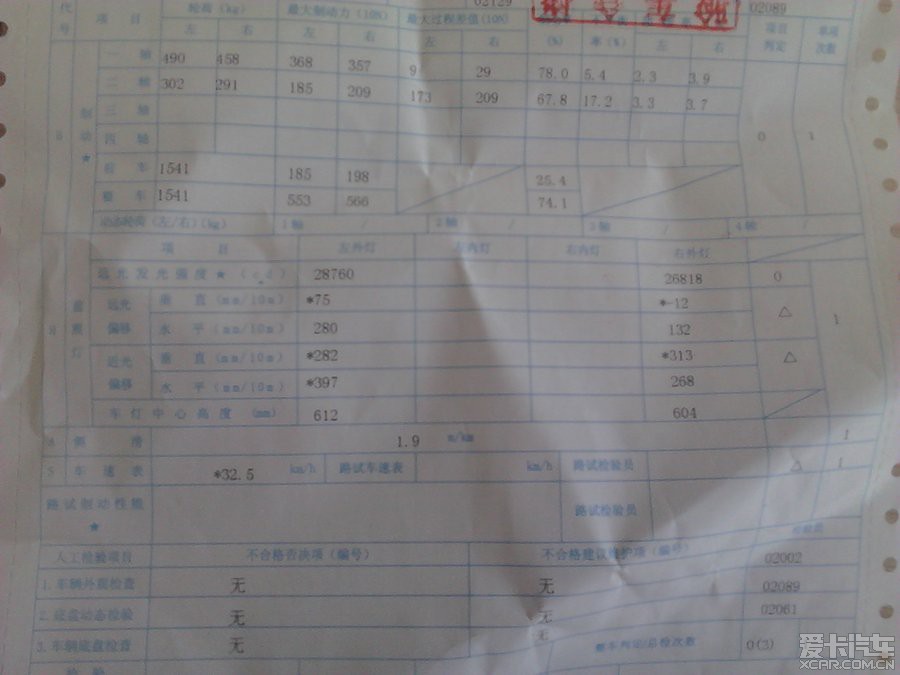 02129 02089
代号 项目 轮荷(kg) 最大制动力(10N) 最大过程差值(10N) 项目判定 单项次数
左 右 左 右 左 右 (%) 率(%) 左 右
一轴 490 458 368 357 9 29 78.0 5.4 2.3 3.9
二轴 302 291 185 209 173 209 67.8 17.2 3.3 3.7
制动★ 三轴 0 1
四轴
驻车 1541 185 198 25.4
整车 1541 553 566 74.1
动态轮荷(左/右)(kg) 1轴 / 2轴 / 3轴 / 4轴 /
项目 左外灯 左内灯 右内灯 右外灯
远光发光强度★(cd) 28760 26818 0
远光偏移 垂直(mm/10m) *75 *-12 △
水平(mm/10m) 280 132 1
近光偏移 垂直(mm/10m) *282 *313 △
水平(mm/10m) *397 268
车灯中心高度(mm) 612 604
侧滑 1.9 m/km 1
5 车速表 *32.5 km/h 路试车速表 km/h 路试检验员 △ 1
路试制动性能★ 路试检验员
人工检验项目 不合格否决项(编号) 不合格建议维护项(编号) 02002
1.车辆外观检查 无 无 02089
2.底盘动态检验 无 无 02061
3.车辆底盘检查 无 无 整车判定/总检次数 0(3)
爱卡汽车
XCAR.COM.CN